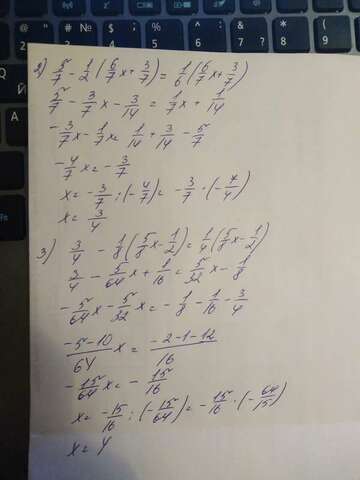 2) 5/7 - 1/2 (6/7 x + 3/7) = 1/6 (6/7 x + 3/7)
5/7 - 3/7 x - 3/14 = 1/7 x + 1/14
- 3/7 x - 1/7 x = 1/14 + 3/14 - 5/7
- 4/7 x = - 3/7
x = - 3/7 : (- 4/7) = - 3/7 · (- 7/4)
x = 3/4
3) 3/4 - 1/8 (5/8 x - 1/2) = 1/4 (5/8 x - 1/2)
3/4 - 5/64 x + 1/16 = 5/32 x - 1/8
- 5/64 x - 5/32 x = - 1/8 - 1/16 - 3/4
-5-10/64 x = -2-1-12/16
- 15/64 x = - 15/16
x = - 15/16 : (- 15/64) = - 15/16 · (- 64/15)
x = 4